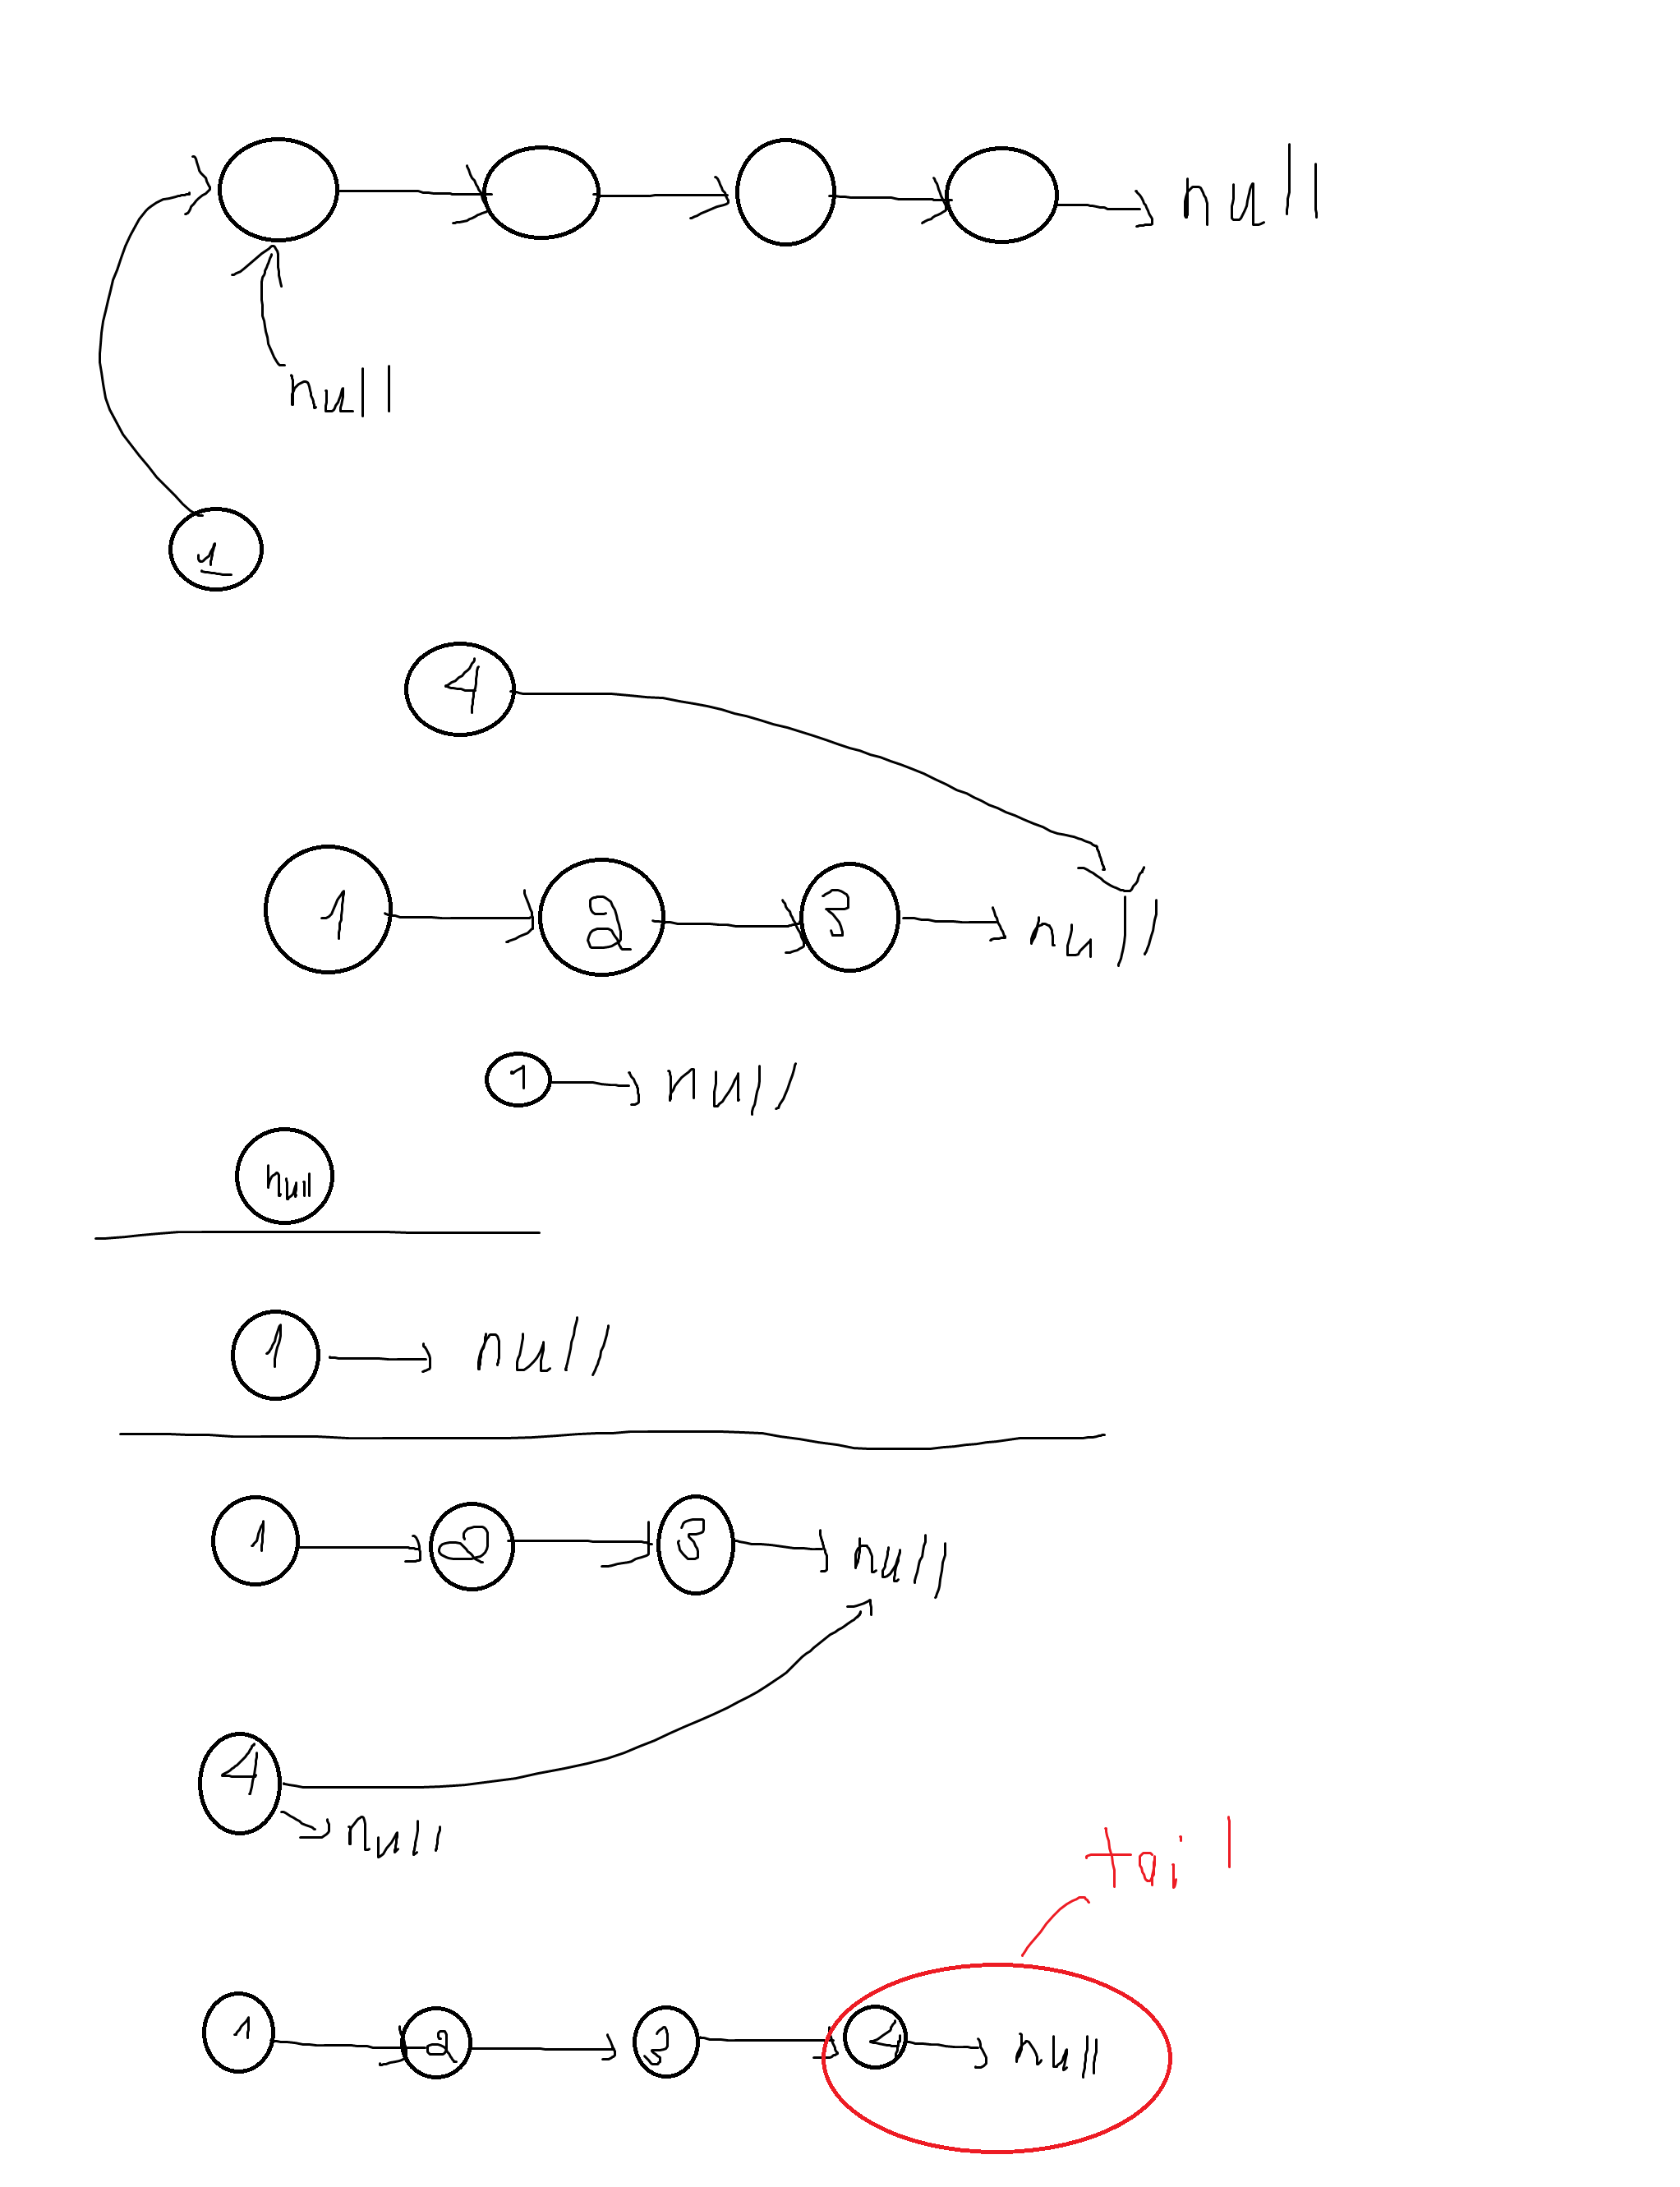 null
null
1
4
1 2 3 null
1 null
null
1 null
1 2 3 null
4
null
tail
1 2 3 4 null